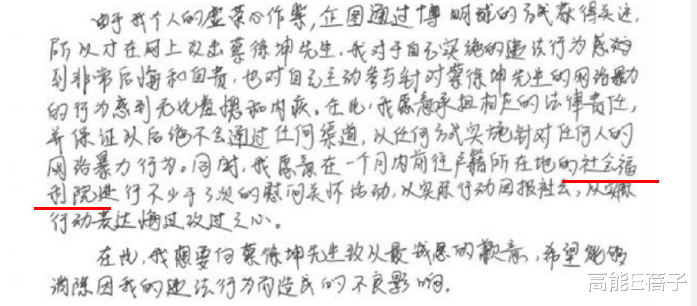 由于我个人的虚荣心作祟,企图通过博眼球的方式获得关注,
所以才在网上攻击蔡徐坤先生。我对于自己实施的违法行为感到
到非常后悔和自责,也对自己主动参与针对蔡徐坤先生的网络暴力
的行为感到无比羞愧和内疚。在此,我愿意承担相应的法律责任,
并保证以后绝不会通过任何渠道,以任何方式实施针对任何人的
网络暴力行为。同时,我愿意在一个月内前往户籍所在地的社会福
利院进行不少于3次的慰问关怀活动,以实际行动回报社会,以
行动表达悔过改过之心。
在此,我想要向蔡徐坤先生致以最诚恳的歉意,希望能够
消除因我的违法行为而造成的不良影响。
高能E蓓子